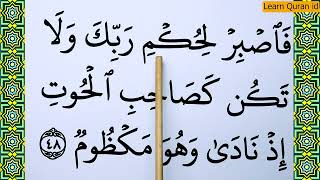 Learn Quran id
فَٱصۡبِرۡ لِحُكۡمِ رَبِّكَ وَلَا
تَكُن كَصَاحِبِ ٱلۡحُوتِ
إِذۡ نَادَىٰ وَهُوَ مَكۡظُومٞ ٤٨